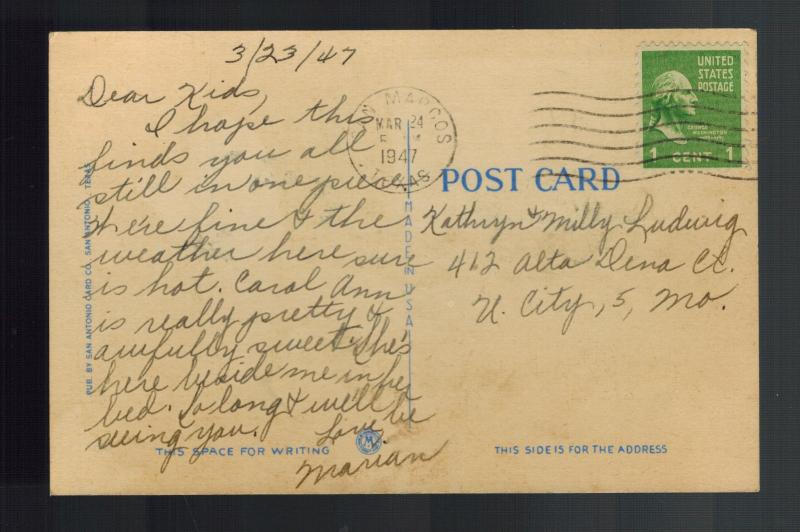 3/23/47
Dear Kids,
I hope this
finds you all
still in one piece.
We're fine & the
weather here sure
is hot. Carol Ann
is really pretty &
awfully sweet. She's
here beside me in her
bed. So long & we'll be
seeing you.
Love,
Marian
SAN MARCOS
MAR 24
1947
TEXAS
UNITED
STATES
POSTAGE
GEORGE
WASHINGTON
1 CENT 1
POST CARD
Kathryn & Milly Ludwig
412 Alta Dena Ct.
U. City, 5, Mo.
MADE IN U.S.A.
PUB. BY SAN ANTONIO CARD CO. SAN ANTONIO, TEXAS
THIS SPACE FOR WRITING
THIS SIDE IS FOR THE ADDRESS